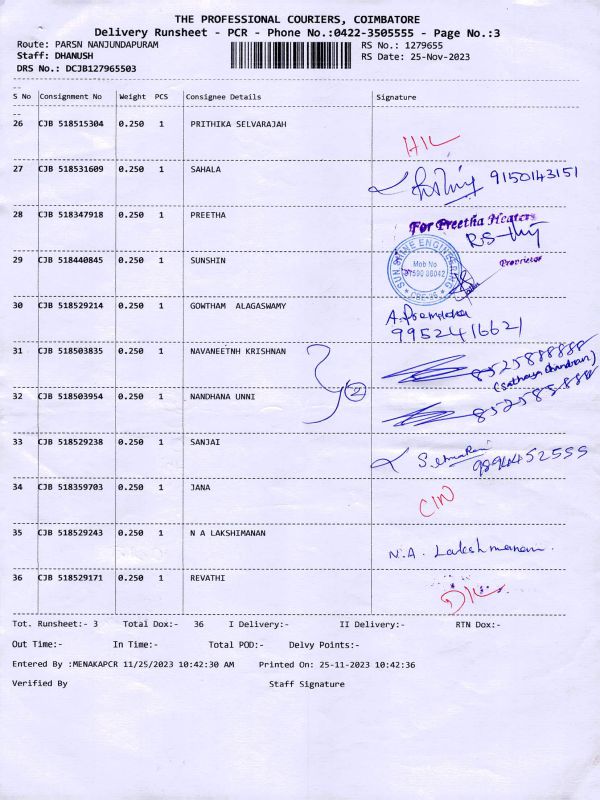 THE PROFESSIONAL COURIERS, COIMBATORE
Delivery Runsheet - PCR - Phone No.:0422-3505555 - Page No.:3
Route: PARSN NANJUNDAPURAM RS No.: 1279655
Staff: DHANUSH RS Date: 25-Nov-2023
DRS No.: DCJB127965503
S No Consignment No Weight PCS Consignee Details Signature
26 CJB 518515304 0.250 1 PRITHIKA SELVARAJAH
27 CJB 518531609 0.250 1 SAHALA 9150143151
28 CJB 518347918 0.250 1 PREETHA For Preetha Heaters
Proprietor
29 CJB 518440845 0.250 1 SUNSHIN SUN SHINE ENGINEERING
Mob No
CBE-36
30 CJB 518529214 0.250 1 GOWTHAM ALAGASWAMY
9952416621
31 CJB 518503835 0.250 1 NAVANEETNH KRISHNAN
32 CJB 518503954 0.250 1 NANDHANA UNNI 2
33 CJB 518529238 0.250 1 SANJAI
34 CJB 518359703 0.250 1 JANA
35 CJB 518529243 0.250 1 N A LAKSHIMANAN N.A. Lakshmanan
36 CJB 518529171 0.250 1 REVATHI
Tot. Runsheet:- 3 Total Dox:- 36 I Delivery:- II Delivery:- RTN Dox:-
Out Time:- In Time:- Total POD:- Delvy Points:-
Entered By :MENAKAPCR 11/25/2023 10:42:30 AM Printed On: 25-11-2023 10:42:36
Verified By Staff Signature